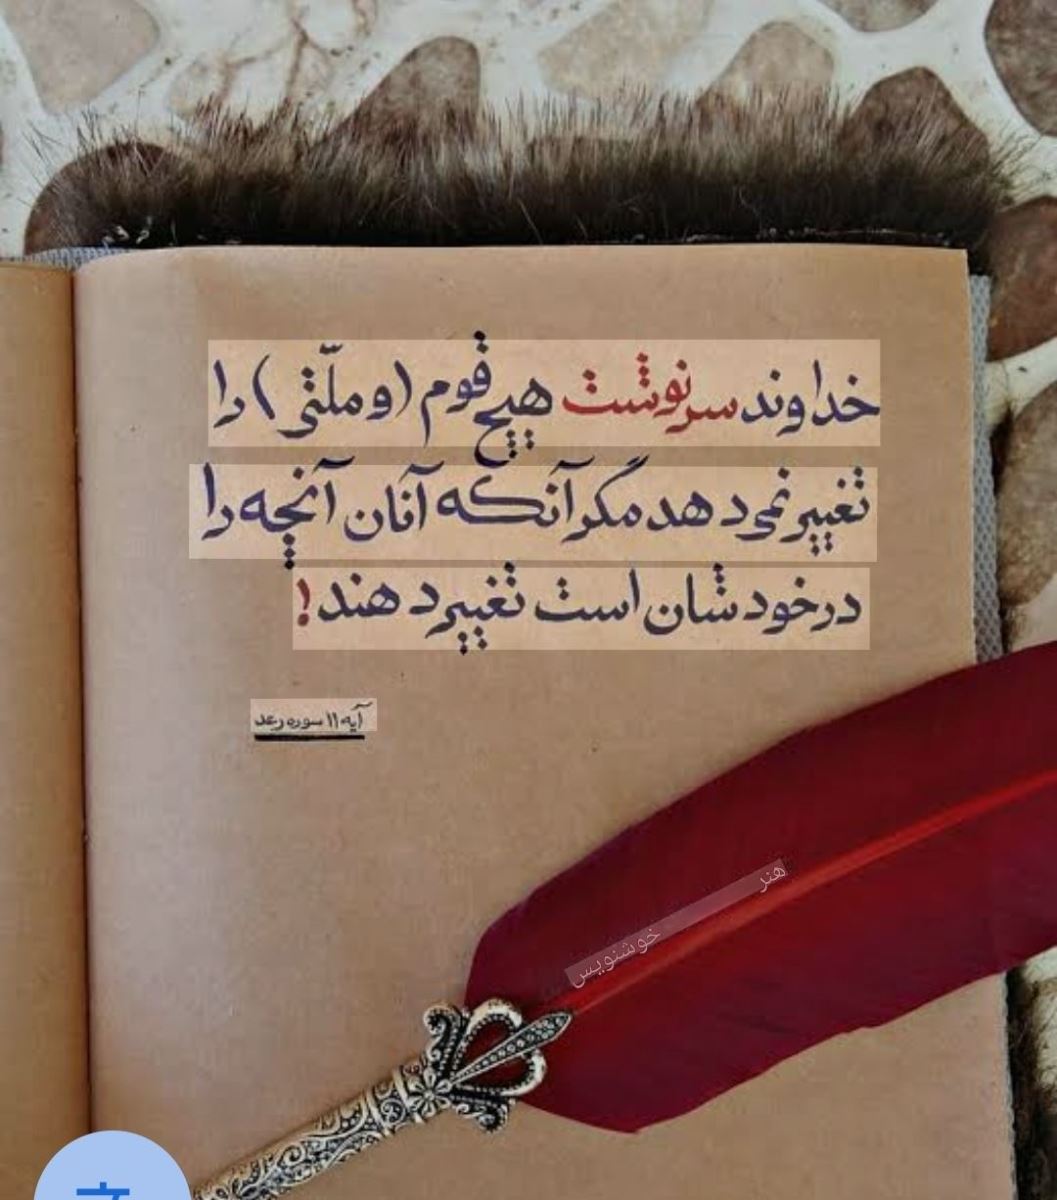 خداوند سرنوشت هیچ قوم (و ملّتی) را
تغییر نمی دهد مگر آنکه آنان آنچه را
در خودشان است تغییر دهند!
آیه ۱۱ سوره رعد
هنر خوشنویس